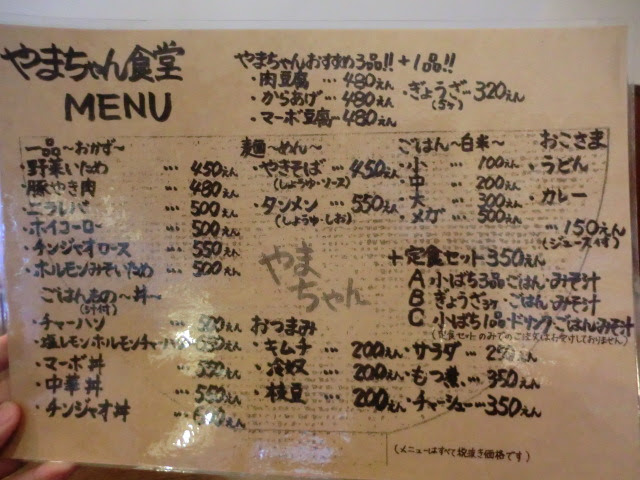 やまちゃん食堂
MENU
やまちゃんおすすめ3品!! +1品!!
・肉豆腐 … 480えん
・からあげ … 480えん
・マーボ豆腐 … 480えん
・ぎょうざ … 320えん
(5ヶ)
一品～おかず～
・野菜いため … 450えん
・豚やき肉 … 480えん
・ニラレバ … 500えん
・ホイコーロー … 500えん
・チンジャオロース … 550えん
・ホルモンみそいため … 500えん
ごはんもの～丼～
(汁付)
・チャーハン … 500えん
・塩レモンホルモンチャーハン
・マーボ丼
・中華丼 … 550えん
・チンジャオ丼
麺～めん～
・やきそば … 450えん
(しょうゆ・ソース)
・タンメン … 550えん
(しょうゆ・しお)
やま
ちゃん
おつまみ
・キムチ … 200えん
・冷奴 … 200えん
・枝豆 … 200えん
・サラダ … えん
・もつ煮 … 350えん
・チャーシュー … 350えん
ごはん～白米～
・小 100えん
・中 … 200えん
・大 … 300えん
・メガ … 500えん
おこさま
・うどん
・カレー
… 150えん
(ジュース付)
+定食セット350えん
A 小ばち3品・ごはん・みそ汁
B ぎょうざ3ヶ・ごはん・みそ汁
C 小ばち1品・ドリンク・ごはん・みそ汁
(定食セットのみでのご注文はお受けしておりません)
(メニューはすべて税抜き価格です)